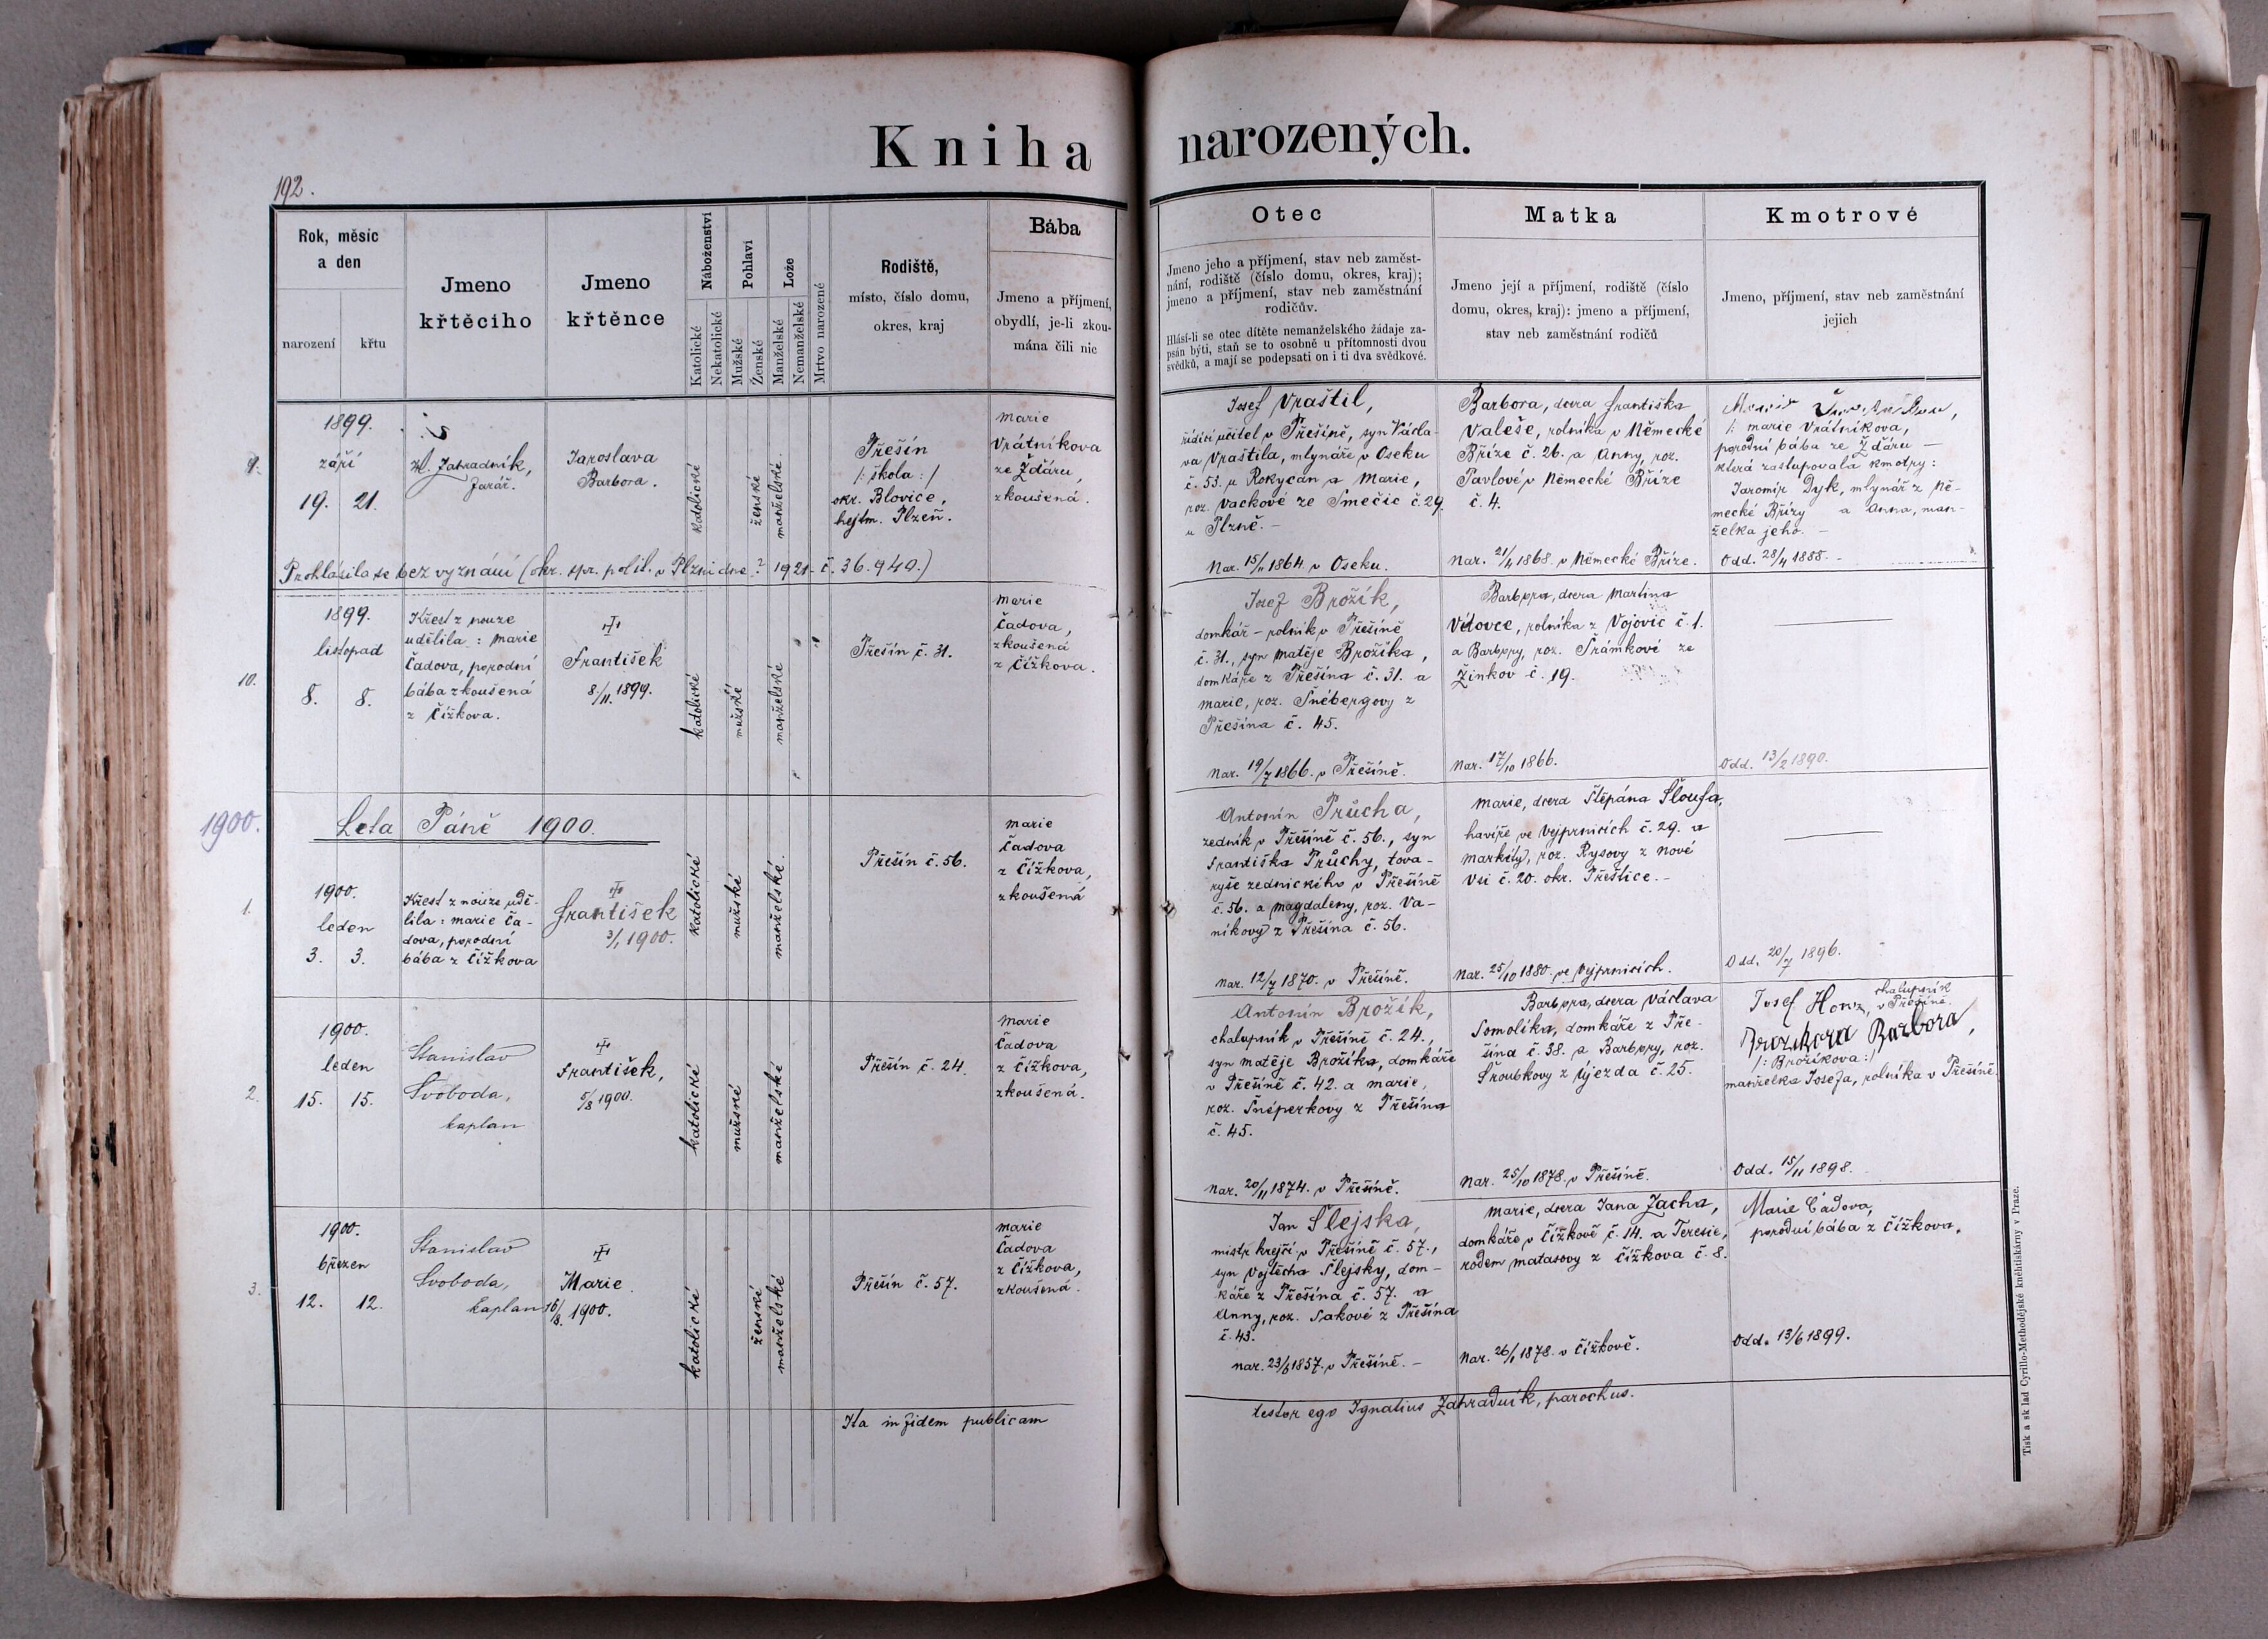 Kniha narozených.
192.
Rok, měsíc
a den
narození
křtu
Jmeno
křtěcího
Jmeno
křtěnce
Náboženství
Katolické
Nekatolické
Pohlaví
Mužské
Ženské
Lože
Manželské
Nemanželské
Mrtvo narozené
Rodiště,
místo, číslo domu,
okres, kraj
Bába
Jmeno a příjmení,
obydlí, je-li zkou-
mána čili nic
Otec
Jmeno jeho a příjmení, stav neb zaměst-
nání, rodiště (číslo domu, okres, kraj);
jmeno a příjmení, stav neb zaměstnání
rodičův.
Hlásí-li se otec dítěte nemanželského žádaje za-
psán býti, staň se to osobně u přítomnosti dvou
svědků, a mají se podepsati on i ti dva svědkové.
Matka
Jmeno její a příjmení, rodiště (číslo
domu, okres, kraj): jmeno a příjmení,
stav neb zaměstnání rodičů
Kmotrové
Jmeno, příjmení, stav neb zaměstnání
jejich
9.
1899.
září
19. 21.
Zahradník,
farář.
Jaroslava
Barbora.
katolické
ženské
manželské.
Přešín
/: škola :/
okr. Blovice,
hejtm. Plzeň.
Marie
Vrátníkova
ze Žďáru,
zkoušená.
Josef Vraštil,
řídící učitel v Přešíně, syn Václa-
va Vraštila, mlynáře v Oseku
č. 53. u Rokycan a Marie,
roz. Vackové ze Smečic č. 29.
u Plzně. –
Nar. 15/11 1864 v Oseku.
Barbora, dcera Františka
Valeše, rolníka v Německé
Bříze č. 26. a Anny, roz.
Pavlové v Německé Bříze
č. 4.
Nar. 21/4 1868 v Německé Bříze.
/: Marie Vrátníkova,
porodní bába ze Žďáru –
která zastupovala kmotry:
Jaromír Dyk, mlynář z Ně-
mecké Břízy a Anna, man-
želka jeho. –
Odd. 28/4 1888. –
Prohlásila se bez vyznání (okr. spr. polit. v Plzni dne ? 1921 č. 36.940.)
10.
1899.
listopad
8. 8.
Křest z nouze
udělila: Marie
Čadova, porodní
bába zkoušená
z Čížkova.
František
8./11. 1899.
katolické
mužské
manželské
Přešín č. 31.
Marie
Čadova,
zkoušená
z Čížkova.
Josef Brožík,
domkář – rolník v Přešíně
č. 31., syn Matěje Brožíka,
domkáře z Přešína č. 31. a
Marie, roz. Šnébergovy z
Přešína č. 45.
Nar. 19/7 1866. v Přešíně.
Barbora, dcera Martina
Vítovce, rolníka z Vojovic č. 1.
a Barbory, roz. Šrámkové ze
Žinkov č. 19.
Nar. 17/10 1866.
Odd. 13/2 1890.
1900.
Leta Páně 1900.
1.
1900.
leden
3. 3.
Křest z nouze udě-
lila: Marie Ča-
dova, porodní
bába z Čížkova
František
3/1 1900.
katolické
mužské
manželské.
Přešín č. 56.
Marie
Čadova
z Čížkova,
zkoušená
Antonín Průcha,
zedník v Přešíně č. 56., syn
Františka Průchy, tova-
ryše zednického v Přešíně
č. 56. a Magdaleny, roz. Va-
níkovy z Přešína č. 56.
Nar. 12/7 1870. v Přešíně.
Marie, dcera Štěpána Šloufa,
havíře ve Vejprnicích č. 29. a
Markéty, roz. Rysovy z Nové
Vsi č. 20. okr. Přeštice. –
Nar. 25/10 1880. ve Vejprnicích.
Odd. 20/7 1896.
2.
1900.
leden
15. 15.
Stanislav
Svoboda,
kaplan
František,
5/8 1900.
katolické
mužské
manželské
Přešín č. 24.
Marie
Čadova
z Čížkova,
zkoušená.
Antonín Brožík,
chalupník v Přešíně č. 24.,
syn Matěje Brožíka, domkáře
v Přešíně č. 42. a Marie,
roz. Šnéperkovy z Přešína
č. 45.
Nar. 20/11 1874. v Přešíně.
Barbora, dcera Václava
Somolíka, domkáře z Pře-
šína č. 38. a Barbory, roz.
Šroubkovy z Újezda č. 25.
Nar. 25/10 1878. v Přešíně.
Josef Honz, chalupník
v Přešíně.
Brožíkova Barbora,
/: Brožíkova :/
manželka Josefa, rolníka v Přešíně.
Odd. 15/11 1898.
3.
1900.
březen
12. 12.
Stanislav
Svoboda,
kaplan
Marie.
16/8. 1900.
katolické
ženské
manželské
Přešín č. 57.
Marie
Čadova
z Čížkova,
zkoušená.
Jan Šlejska,
mistr krejčí v Přešíně č. 57.,
syn Vojtěcha Šlejsky, dom-
káře z Přešína č. 57. a
Anny, roz. Sakové z Přešína
č. 43.
Nar. 23/6 1857. v Přešíně. –
Marie, dcera Jana Zacha,
domkáře v Čížkově č. 14. a Teresie,
rodem Matasovy z Čížkova č. 8.
Nar. 26/1 1878. v Čížkově.
Marie Čadova,
porodní bába z Čížkova.
Odd. 13/6 1899.
Ita in fidem publicam
testor ego Ignatius Zahradník, parochus.
Tisk a sklad Cyrillo-Methodějské knihtiskárny v Praze.